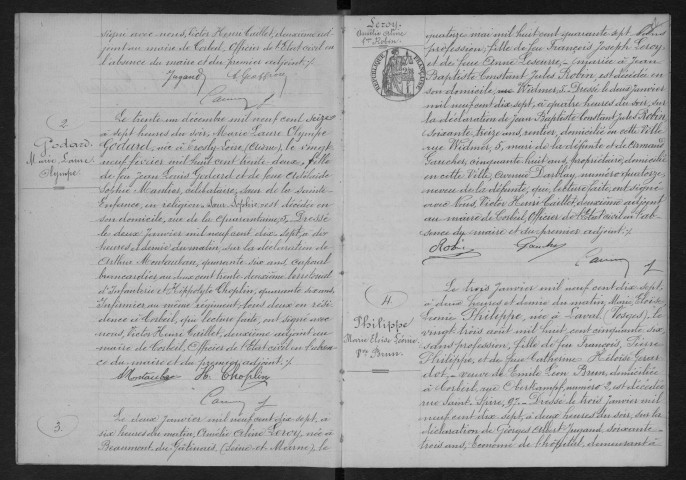 signé avec nous, Victor Henri Caillet, deuxième ad-
joint au maire de Corbeil, Officier de l'Etat civil en
l'absence du maire et du premier adjoint. /.
Jugand
2
Godard
Marie Laure
Olympe
Le trente un décembre mil neuf cent seize
à sept heures du soir, Marie Laure Olympe
Godard, née à (Aisne), le vingt
neuf février mil huit cent trente deux, fille
de feu Jean Louis Godard et de feue Adélaïde
Sophie célibataire, sœur de la Sainte
Enfance, en religion Sœur Sophie, est décédée en
son domicile, rue de la Quarantaine, 5. Dressé
le deux janvier mil neuf cent dix sept, à dix
heures et demie du matin, sur la déclaration de
Arthur Montauban, quarante six ans, caporal
brancardier au deux cent trente deuxième territorial
d'Infanterie et Hippolyte Choplin, quarante six ans,
Infirmier au même régiment, tous deux en rési-
dence à Corbeil, qui, lecture faite, ont signé avec
nous, Victor Henri Caillet, deuxième adjoint au
maire de Corbeil, Officier de l'Etat civil en l'absen-
ce du maire et du premier adjoint. /.
Montauban H. Choplin
3.
Le deux janvier mil neuf cent dix sept, à
six heures du matin, Aurélie Aline Leroy, née à
Beaumont du Gâtinais, (Seine et Marne), le
Leroy
Aurélie Aline
fe Robin
RÉPUBLIQUE FRANÇAISE
quatorze mai mil huit cent quarante sept, sans
profession; fille de feu François Joseph Leroy
et de feue Anne Lescure, mariée à Jean
Baptiste Constant Jules Robin, est décédée en
son domicile, rue Widmer, 5. Dressé le deux janvier
mil neuf cent dix sept, à quatre heures du soir, sur
la déclaration de Jean Baptiste Constant Jules Robin
soixante treize ans, rentier, domicilié en cette ville
rue Widmer, 5, mari de la défunte et de Armand
Gaucher, cinquante huit ans, propriétaire, domicilié
en cette Ville, avenue Darblay, numéro quatorze,
neveu de la défunte, qui, lecture faite, ont signé
avec Nous, Victor Henri Caillet, deuxième adjoint
au maire de Corbeil, Officier de l'Etat civil en l'ab-
sence du maire et du premier adjoint. /.
Robin
4
Philippe
Marie Eloïse Léonie
Ve Brun
Le trois janvier mil neuf cent dix sept,
à deux heures et demie du matin, Marie Eloïse
Léonie Philippe, née à Laval (Vosges), le
vingt trois août mil huit cent cinquante six,
sans profession, fille de feu François Pierre
Philippe, et de feue Catherine Héloïse
veuve de Emile Léon Brun, domiciliée
à Corbeil, rue Oberkampf, numéro 2, est décédée
rue Saint Spire, 9. Dressé le trois janvier mil
neuf cent dix sept, à deux heures du soir, sur la
déclaration de Georges Albert Jugand, soixante
trois ans, Econome de l'hôpital, demeurant à